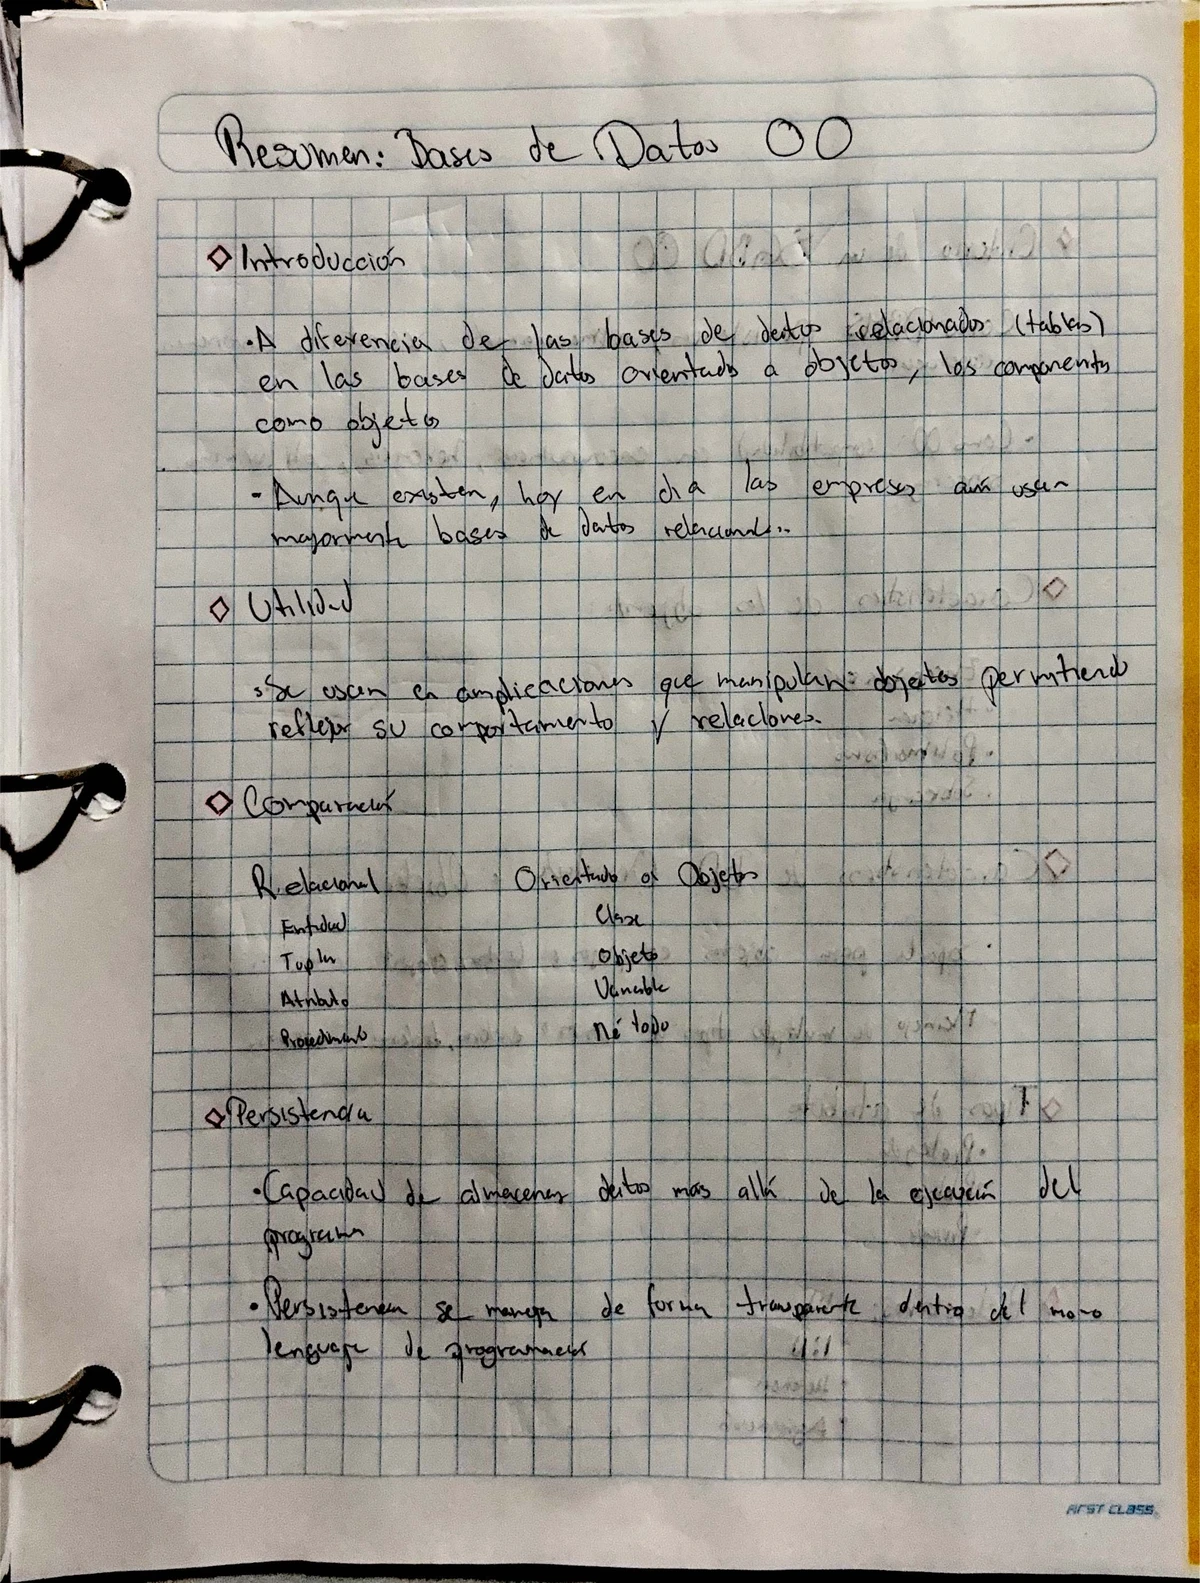 Resumen: Bases de Datos OO
Introducción
• A diferencia de las bases de datos relacionados (tablas)
en las bases de datos orientado a objetos, los componentes
como objetos
- Aunque existen, hoy en día las empresas aún usan
mayormente bases de datos relacional..
Utilidad
• Se usan en amplicaciones que manipulan objetos permitiendo
reflejar su comportamiento y relaciones.
Comparación
Relacional Orientado a Objetos
Entidad Clase
Tupla Objeto
Atributo Variable
Procedimiento Método
Persistencia
• Capacidad de almacenar datos más allá de la ejecución del
programa
• Persistencia se maneja de forma transparente dentro del
lenguaje de programación
FIRST CLASS